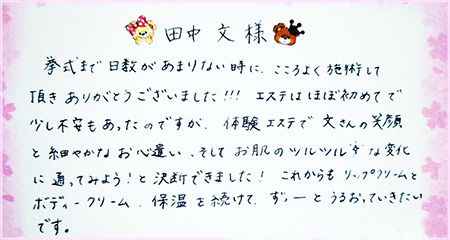 田中 文 様
挙式まで日数があまりない時に、こころよく施術して
頂きありがとうございました!!! エステはほぼ初めてで
少し不安もあったのですが、体験エステで文さんの笑顔
と細やかなお心遣い、そしてお肌のツルツルな変化
に通ってみよう!と決断できました! これからもリップクリームと
ボディークリーム、保温を続けて、ずぅーっとうるおっていきたい
です。